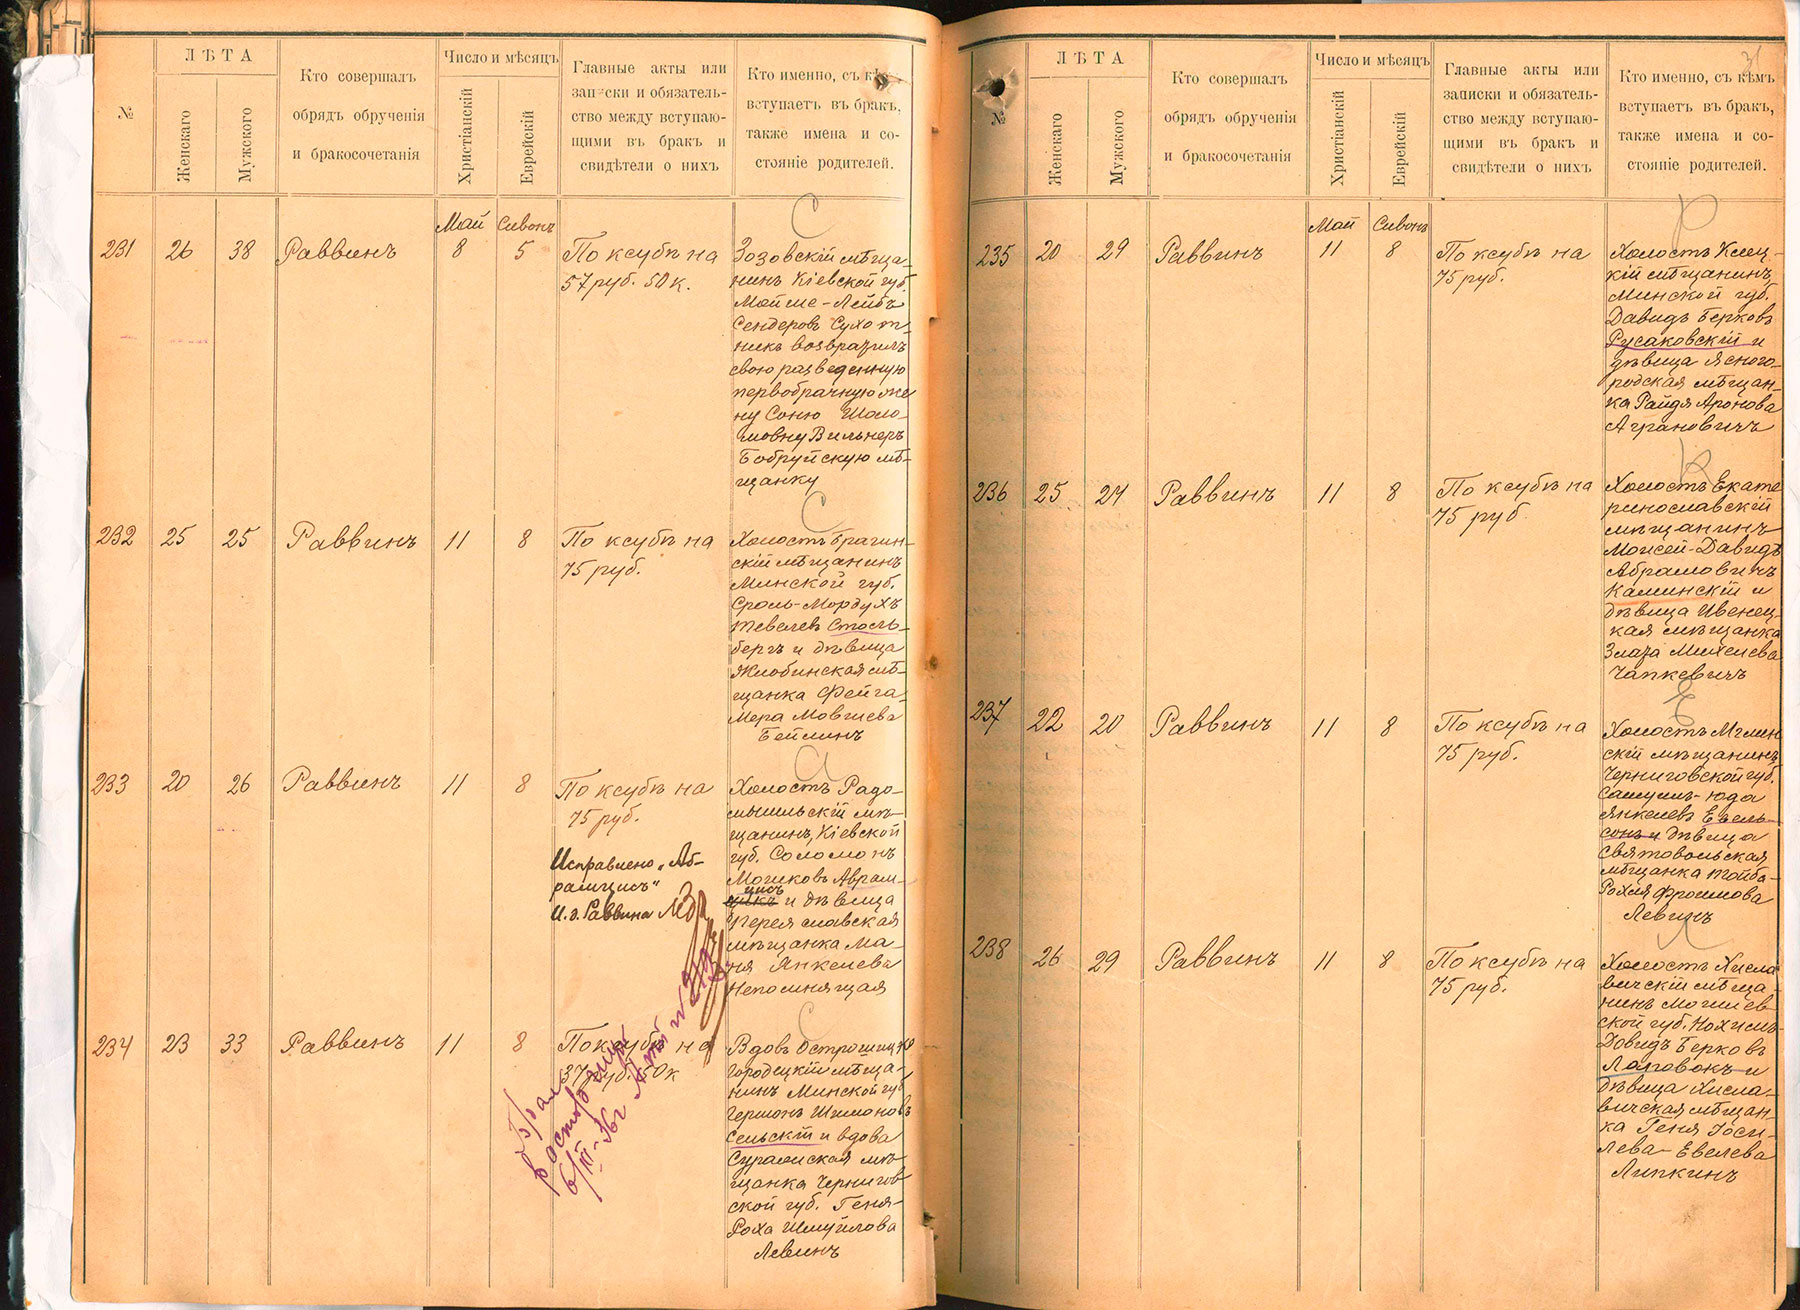 №
ЛѢТА
Женскаго
Мужского
Кто совершалъ
обрядъ обрученія
и бракосочетанія
Число и мѣсяцъ
Христіанскій
Еврейскій
Главные акты или
записки и обязатель-
ство между вступаю-
щими въ бракъ и
свидѣтели о нихъ
Кто именно, съ кѣмъ
вступаетъ въ бракъ,
также имена и со-
стояніе родителей.
С
Май Сивонъ
231 26 38 Раввинъ 8 5
По ксубѣ на
57 руб. 50 к.
Зозовскій мѣща-
нинъ Кіевской губ.
Мойше-Лейбъ
Сендеровъ Сухот-
никъ возвратилъ
свою разведенную
первобрачную же
ну Соню Шоло-
мовну Вильнеръ
Бобруйскую мѣ-
щанку
С
232 25 25 Раввинъ 11 8
По ксубѣ на
75 руб.
Холостъ Брагин-
скій мѣщанинъ
Минской губ.
Сроль-Мордухъ
Тевелевъ Столь-
бергъ и дѣвица
Жлобинская мѣ-
щанка Фейга-
Мера Мовшева
Бейлинъ
А
233 20 26 Раввинъ 11 8
По ксубѣ на
75 руб.
Исправлено „Аб-
рамцисъ"
И. д. Раввина
Холостъ Радо-
мысльскій мѣ-
щанинъ, Кіевской
губ. Соломонъ
Мошковъ Аврам-
цисъ
и дѣвица
Переяславская
мѣщанка Ма-
ня Янкелева
Непомнящая
С
234 23 33 Раввинъ 11 8
По ксубѣ на
37 руб. 50 к
Брак
расторгнут
6/III-36г
Вдовъ Острошиц
городецкій мѣща-
нинъ Минской губ
Гершонъ Шимоновъ
Сельскій и вдова
Суражская мѣ-
щанка Чернигов
ской губ. Геня-
Роха Шмуйлова
Левинъ
31
№
ЛѢТА
Женскаго
Мужского
Кто совершалъ
обрядъ обрученія
и бракосочетанія
Число и мѣсяцъ
Христіанскій
Еврейскій
Главные акты или
записки и обязатель-
ство между вступаю-
щими въ бракъ и
свидѣтели о нихъ
Кто именно, съ кѣмъ
вступаетъ въ бракъ,
также имена и со-
стояніе родителей.
Р
Май Сивонъ
235 20 29 Раввинъ 11 8
По ксубѣ на
75 руб.
Холостъ Клец-
кій мѣщанинъ,
Минской губ.
Давидъ Берковъ
Русаковскій и
дѣвица Ясного-
родская мѣщан-
ка Райдя Аронова
Аграновичъ
К
236 25 27 Раввинъ 11 8
По ксубѣ на
75 руб
Холостъ Екате
ринославскій
мѣщанинъ
Моисей-Давидъ
Абрамовичъ
Каминскій и
дѣвица Ивенец-
кая мѣщанка
Злата Михелева
Чапкевичъ
Е
237 22 20 Раввинъ 11 8
По ксубѣ на
75 руб.
Холостъ Мглин
скій мѣщанинъ
Черниговской губ.
Самуилъ-Юда
Янкелевъ Евель-
сонъ и дѣвица
Святовольская
мѣщанка Тойба-
Рохля Фроимова
Левинъ
Л
238 26 29 Раввинъ 11 8
По ксубѣ на
75 руб.
Холостъ Хисла
вичскій мѣща-
нинъ Могилев
ской губ. Нохимъ-
Довидъ Берковъ
Лаповокъ и
дѣвица Хисла-
вичская мѣщан-
ка Геня Іоси-
лева-Евелева
Липкинъ